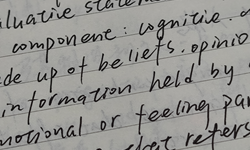 luative state
component: cognitie.
de up of beliefs. opinio
information held by
motional or feeling pa
that refers